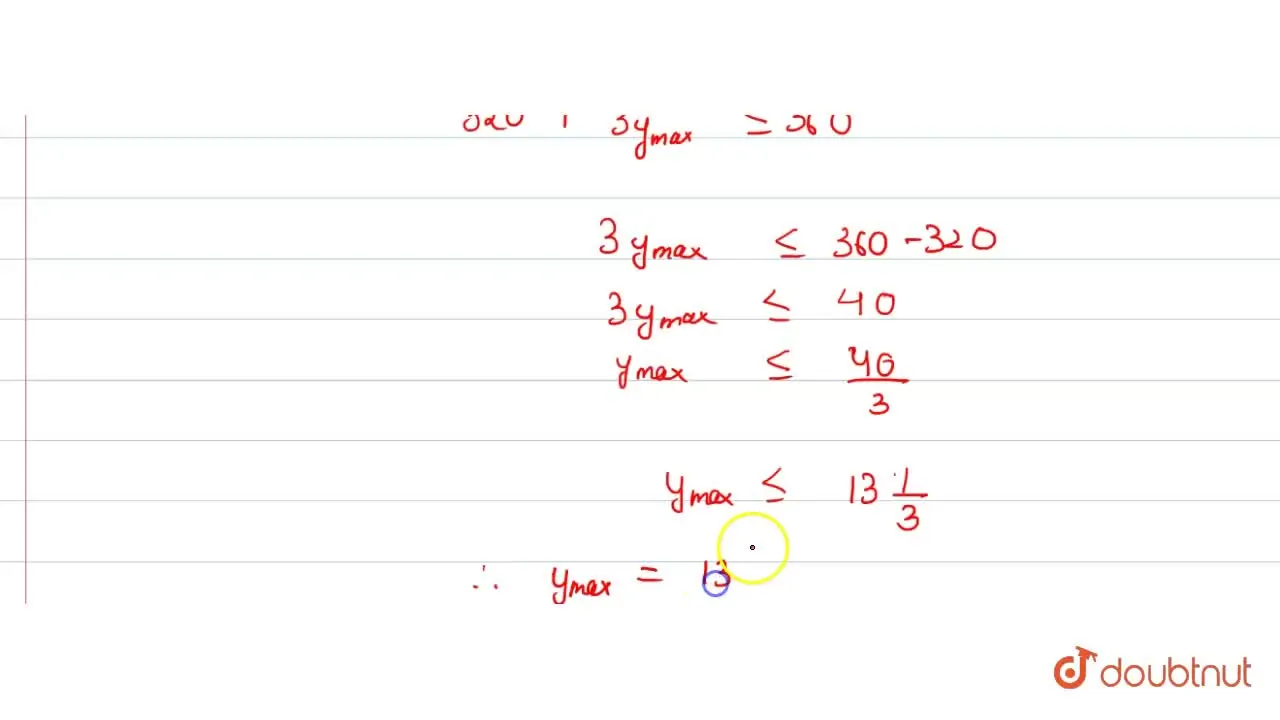 320 + 3ymax ≥ 360
3 ymax ≤ 360 - 320
3 ymax ≤ 40
ymax ≤ 40/3
ymax ≤ 13 1/3
∴ ymax = 13
doubtnut